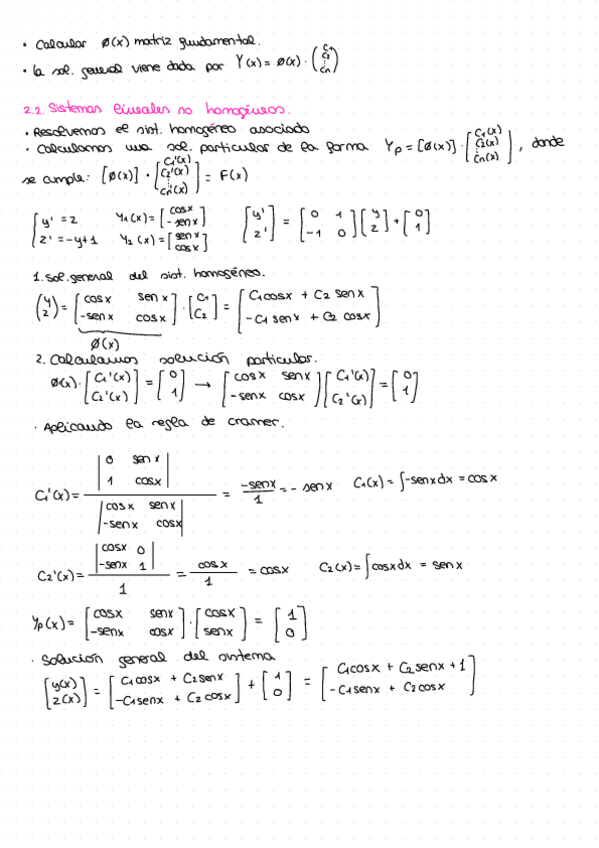 · Calcular Ø(x) matriz fundamental.
· la sol. general viene dada por Y(x) = Ø(x) · (C1 C2 ⋮ Cn)
2.2. Sistemas lineales no homogéneos.
· Resolvemos el sist. homogéneo asociado
· Calculamos una sol. particular de la forma Yp = [Ø(x)] · [C1(x) C2(x) ⋮ Cn(x)], donde
se cumple: [Ø(x)] · [C1'(x) C2'(x) ⋮ Cn'(x)] = F(x)
{ y' = z  Y1(x) = [cosx -senx]  [y' z'] = [0 1 -1 0] [y z] + [0 1]
{ z' = -y+1  Y2(x) = [senx cosx]
1. Sol. general del sist. homogéneo.
(y z) = [cosx senx -senx cosx] · [C1 C2] = [C1cosx + C2 senx -C1 senx + C2 cosx]
Ø(x)
2. Calculamos solución particular.
Ø(x) · [C1'(x) C2'(x)] = [0 1] → [cosx senx -senx cosx] [C1'(x) C2'(x)] = [0 1]
· Aplicando la regla de cramer.
C1'(x) = |0 senx 1 cosx| / |cosx senx -senx cosx| = -senx/1 = - senx  C1(x) = ∫-senxdx = cosx
C2'(x) = |cosx 0 -senx 1| / 1 = cosx/1 = cosx  C2(x) = ∫cosxdx = senx
Yp(x) = [cosx senx -senx cosx] · [cosx senx] = [1 0]
· Solución general del sistema
[y(x) z(x)] = [C1cosx + C2senx -C1senx + C2cosx] + [1 0] = [C1cosx + C2senx + 1 -C1senx + C2cosx]